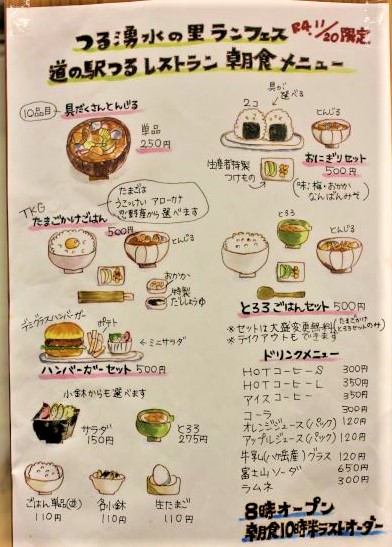 つる湧水の里 ランフェス R4.11/20限定
道の駅つるレストラン 朝食メニュー
10品目
具だくさんとんじる
単品
250円
具が選べる
2コ
とんじる
生産者特製
つけもの
おにぎりセット
500円
(味;梅・おかか
なんばんみそ)
TKG
たまごかけごはん
500円
たまごは
うこっけい アローカナ
忍野産から選べます
とんじる
おかか
特製
だししょうゆ
とろろ
とんじる
とろろごはんセット 500円
※セットは大盛変更無料(たまごかけ
とろろセットのみ)
※テイクアウトもできます
デミグラスハンバーガー
ポテト
ミニサラダ
ハンバーガーセット 500円
小鉢からも選べます
サラダ
150円
とろろ
275円
ごはん単品(並)
110円
各小鉢
110円
生たまご
110円
ドリンクメニュー
HOTコーヒーS 300円
HOTコーヒーL 350円
アイスコーヒー 350円
コーラ 300円
オレンジジュース(パック) 120円
アップルジュース(パック) 120円
牛乳(八ヶ岳産)グラス 120円
富士山ソーダ 650円
ラムネ 300円
8時オープン
朝食10時半ラストオーダー